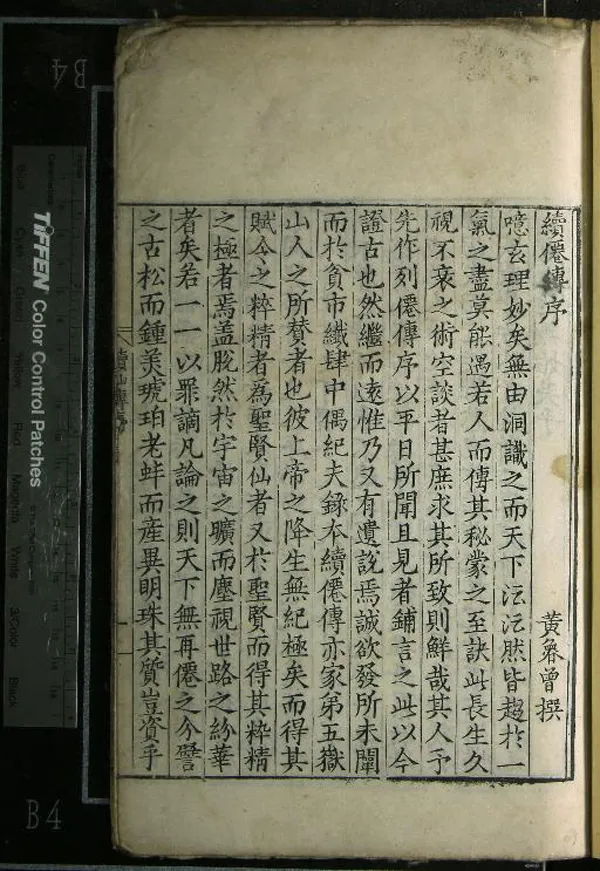 續僊傳序
黃魯曾撰
噫玄理妙矣無由洞識之而天下沄沄然皆趨於一
氣之盡莫能遇若人而傳其秘蒙之至訣此長生久
視不衰之術空談者甚庶求其所致則鮮哉其人予
先作列僊傳序以平日所聞且見者鋪言之此以今
證古也然繼而遠惟乃又有遺說焉誠欲發所未闡
而於貧市纖肆中偶紀夫錄本續僊傳亦家第五嶽
山人之所賛者也彼上帝之降生無紀極矣而得其
賦今之粹精者為聖賢仙者又於聖賢而得其粹精
之極者焉盖脫然於宇宙之曠而塵視世路之紛華
者矣若一一以罪謫凡論之則天下無再僊之今譬
之古松而鍾美琥珀老蚌而產異明珠其質豈資乎
B4
TIFFEN Color Control Patches
B4